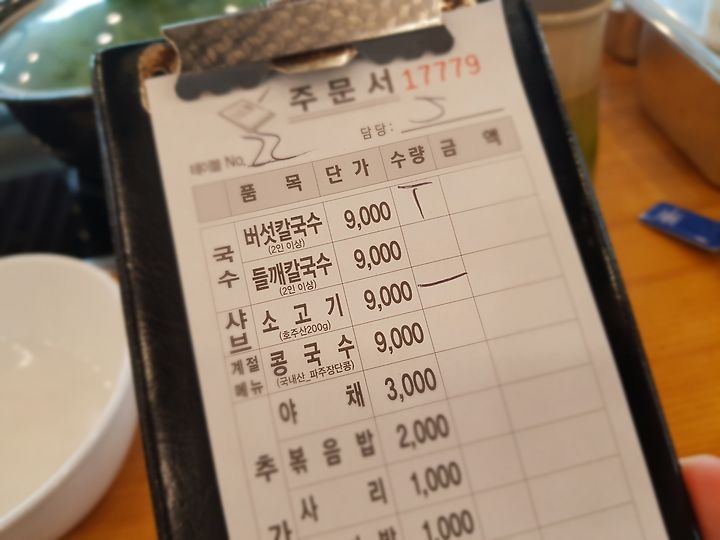 주문서 17779
테이블 No. 22 담당:
품 목 단가 수량 금 액
국수 버섯칼국수 (2인 이상) 9,000 T
들깨칼국수 (2인 이상) 9,000
샤브 소고기 (호주산200g) 9,000 一
계절메뉴 콩국수 (국내산_파주장단콩) 9,000
야 채 3,000
추 볶음밥 2,000
가 사 리 1,000
1,000